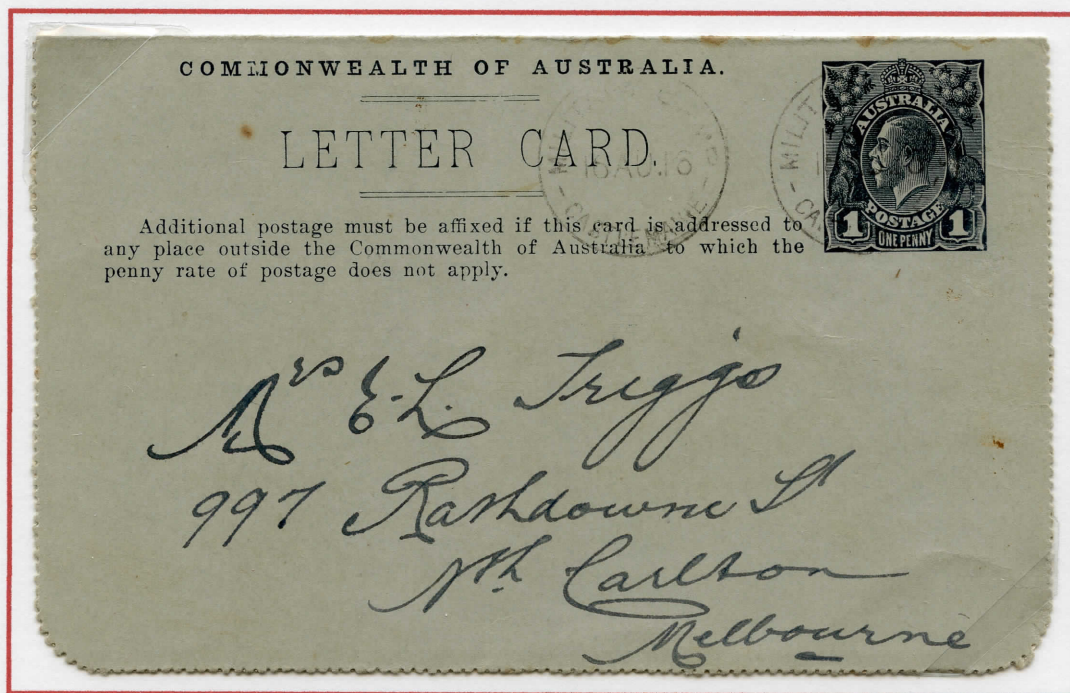 COMMONWEALTH OF AUSTRALIA.
LETTER CARD.
Additional postage must be affixed if this card is addressed to
any place outside the Commonwealth of Australia to which the
penny rate of postage does not apply.
AUSTRALIA
POSTAGE
1 ONE PENNY 1
16 AU.16
Mrs E-L. Triggs
997 Rathdowne St
Nth. Carlton
Melbourne